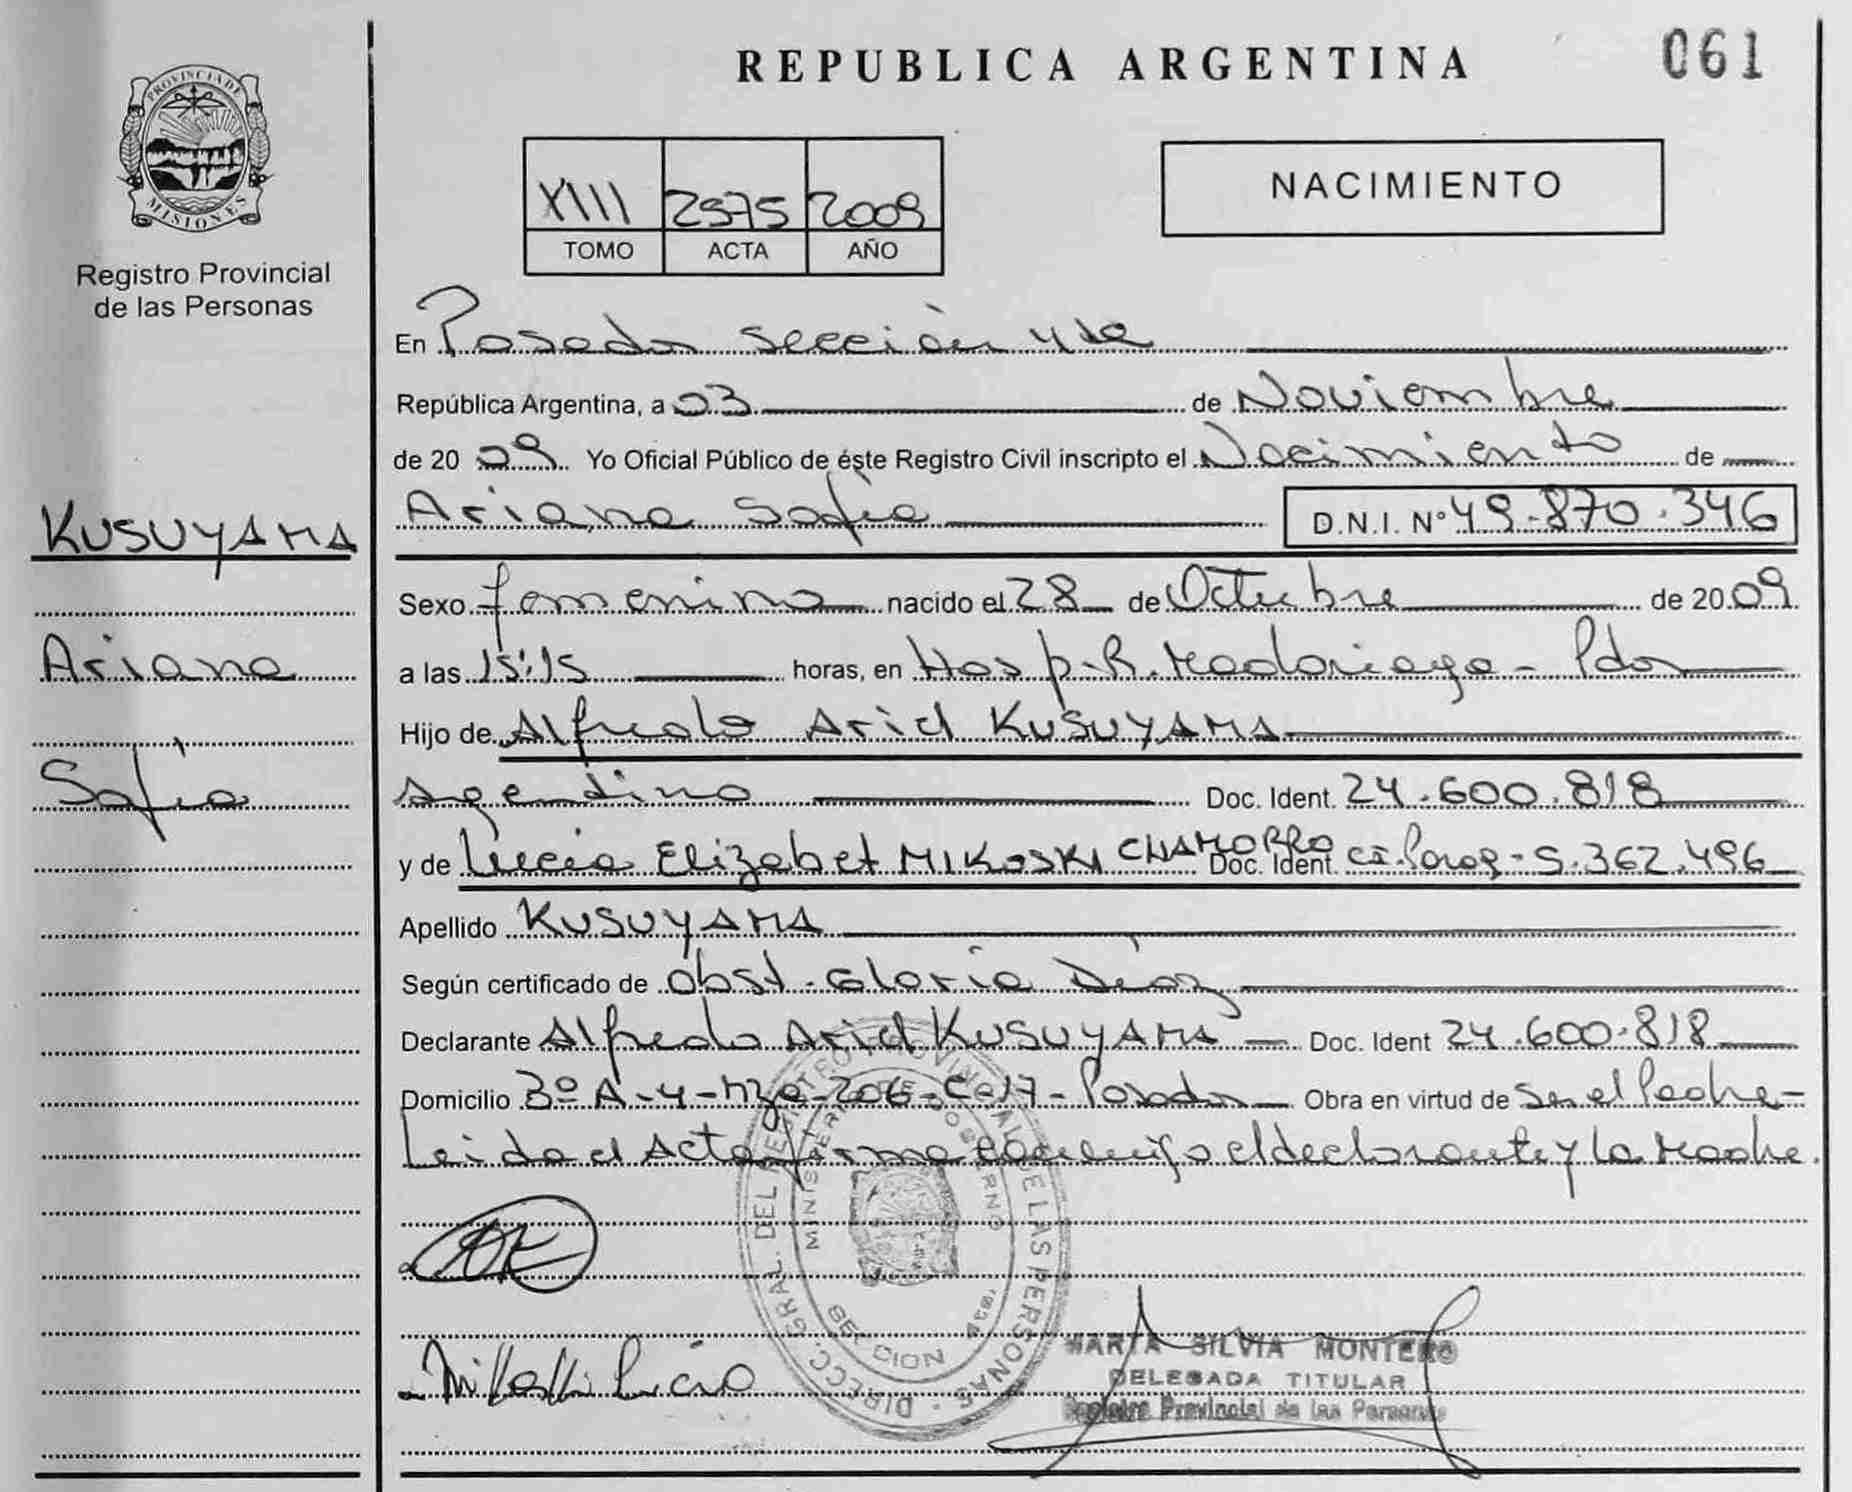 REPUBLICA ARGENTINA
061
PROVINCIA DE
MISIONES
Registro Provincial
de las Personas
XIII 2575 2009
TOMO ACTA AÑO
NACIMIENTO
En Posadas sección 4ta
República Argentina, a 03 de Noviembre
de 2009 Yo Oficial Público de éste Registro Civil inscripto el Nacimiento de
Ariana Sofía D.N.I. Nº 49.870.346
KUSUYAMA
Ariana
Sofía
Sexo femenino nacido el 28 de Octubre de 2009
a las 15:15 horas, en Hosp. R. Madariaga - Pdas
Hijo de Alfredo Ariel KUSUYAMA
Argentino Doc. Ident. 24.600.818
y de Lucia Elizabet MIKOSKI CHAMORRO Doc. Ident. CI. Parag - 5.362.496
Apellido KUSUYAMA
Según certificado de Obst. Gloria Díaz
Declarante Alfredo Ariel KUSUYAMA Doc. Ident 24.600.818
Domicilio 3º A-4-Mza-206-C-17- Posadas Obra en virtud de Ser el Padre-
Leida el Acta firma conmigo el declarante y la Madre.
DIRECC. GRAL. DEL REGISTRO PROVINCIAL DE LAS PERSONAS
MINISTERIO DE GOBIERNO
SECCION
Mikoski Lucia
MARTA SILVIA MONTERO
DELEGADA TITULAR
Registro Provincial de las Personas